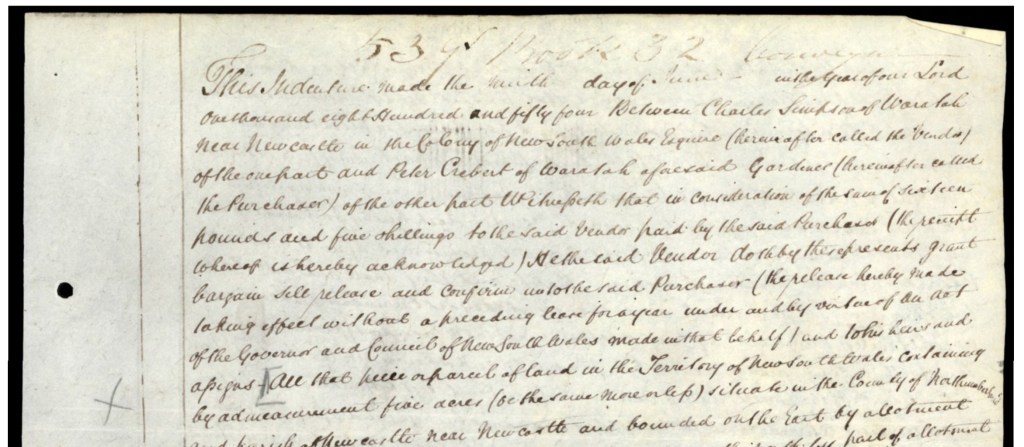 53 of Book 32 Conveya
This Indenture made the ninth day of June - in the Year of our Lord
one thousand eight Hundred and fifty four Between Charles Simpson of Waratah
near Newcastle in the Colony of New South Wales Esquire (hereinafter called the Vendor)
of the one part and Peter Crebert of Waratah aforesaid Gardener (hereinafter called
the Purchaser) of the other part Witnesseth that in consideration of the sum of sixteen
pounds and five shillings to the said Vendor paid by the said Purchaser (the receipt
whereof is hereby acknowledged) He the said Vendor doth by these presents grant
bargain sell release and confirm unto the said Purchaser (the release hereby made
taking effect without a preceding lease for a year under and by virtue of an Act
of the Governor and Council of New South Wales made in that behalf) and to his heirs and
assigns All that piece or parcel of land in the Territory of New South Wales containing
by admeasurement five acres (be the same more or less) situate in the County of Northumberland
and parish of Newcastle near Newcastle and bounded on the East by allotment
part of allotment